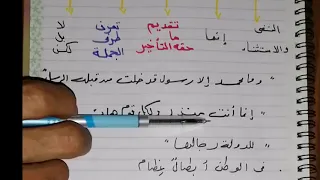 النفي والاستثناء
إنما
تقديم ما حقه التأخير
تعرف طرفي الجملة
لا بل لكن
" وما محمد إلا رسول قد خلت من قبله الرسل "
" إنما أنت منذر ولكل قوم هاد "
" للدولة رجالها "
في الوطن أبطال